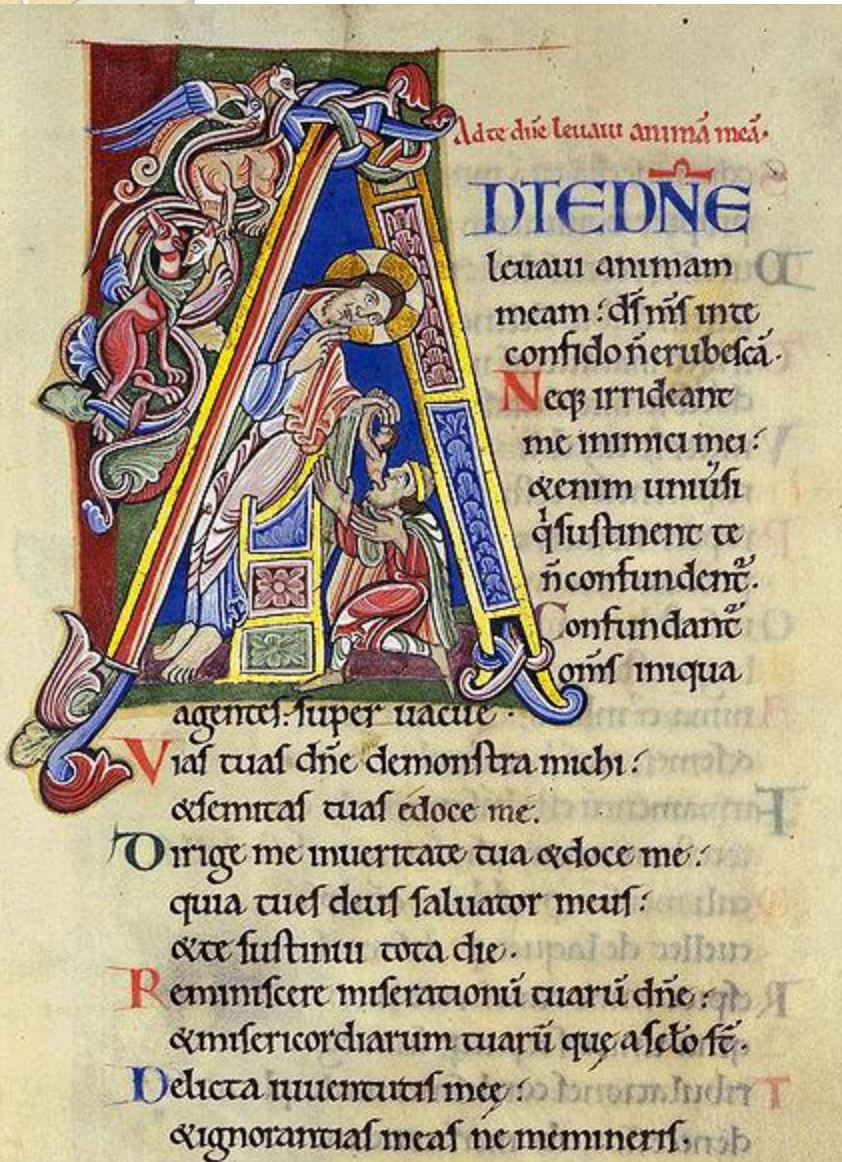 Ad te dn̄e leuaui animā meā.
ADTEDN̄E
leuaui animam
meam: dſ̄ mſ̄ inte
confido n̄ erubeſcā.
Neq; irrideant
me inimici mei:
&enim uniu᷑ſi
qͥ ſuſtinent te
n̄ confundent᷑.
Confundant᷑
om̄ſ iniqua
agenteſ: ſuper uacue.
Viaſ tuaſ dn̄e demonſtra michi:
&ſemitaſ tuaſ edoce me.
Dirige me inueritate tua &doce me:
quia tueſ deuſ ſaluator meuſ:
&te ſuſtinui tota die.
Reminiſcere miſerationū tuarū dn̄e:
&miſericordiarum tuarū quę aſcł̄o ſt̄.
Delicta iuuentutiſ meę:
&ignorantiaſ meaſ ne memineriſ.